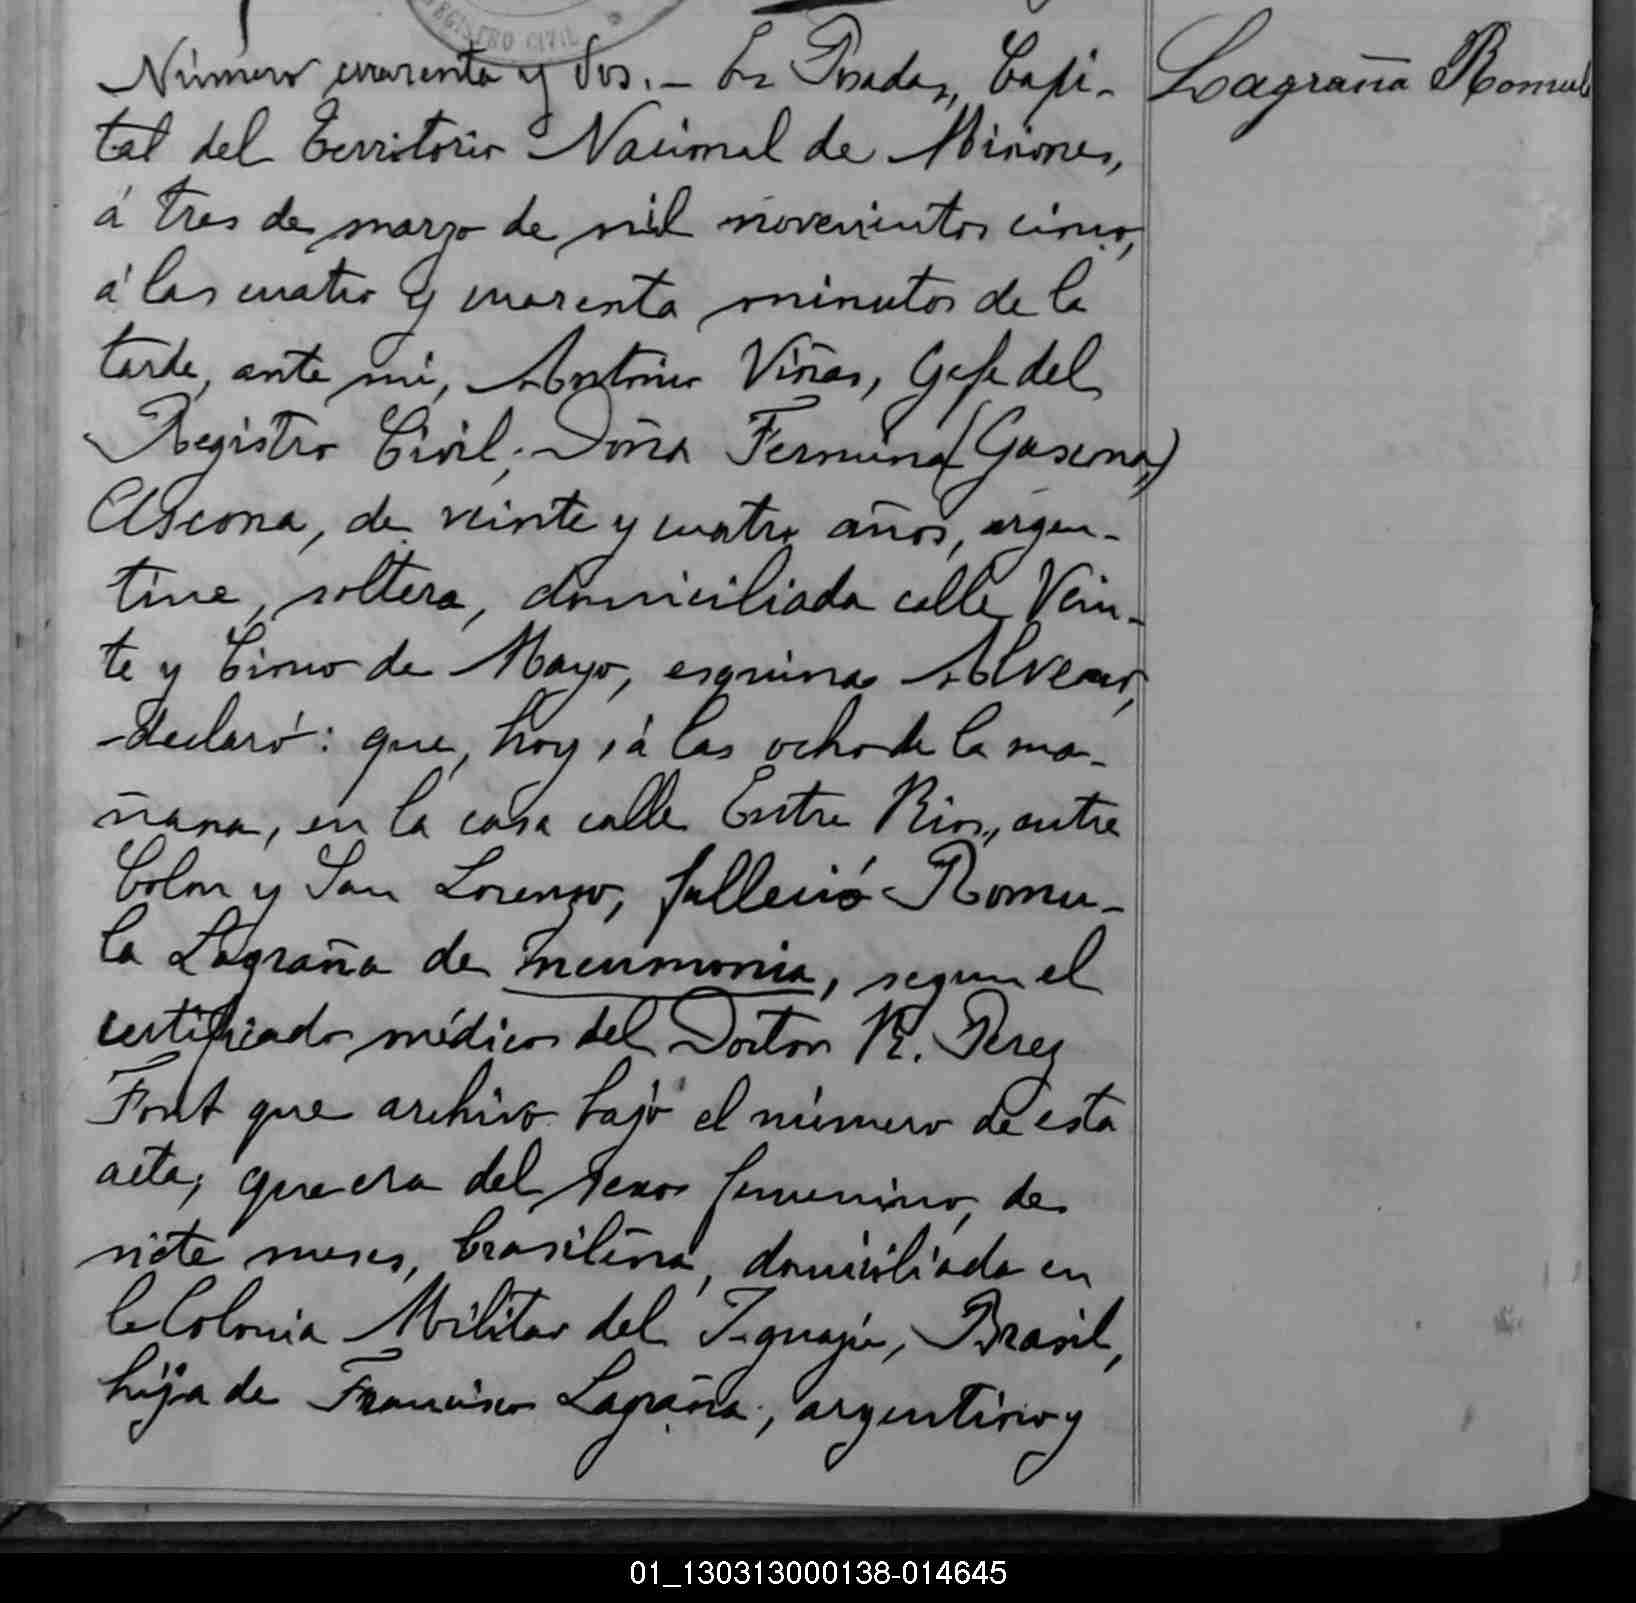 REGISTRO CIVIL
Número cuarenta y dos.- En Posadas, Capi-
Lagraña Romul
tal del Territorio Nacional de Misiones,
á tres de marzo de mil novecientos cinco,
á las cuatro y cuarenta minutos de la
tarde, ante mi, Antonio Viñas, Gefe del
Registro Civil; Doña Fermina (Gascona,)
Ascona, de veinte y cuatro años, argen-
tina, soltera, domiciliada calle Vein-
te y Cinco de Mayo, esquina Alvear,
declaró: que, hoy, á las ocho de la ma-
ñana, en la casa calle Entre Rios, entre
Colon y San Lorenzo, falleció Romu-
la Lagraña de neumonia, segun el
certificado médico del Doctor R. Perez
Font que archivo bajo el número de esta
acta; que era del sexo femenino, de
siete meses, brasilera, domiciliada en
la Colonia Militar del Iguazú, Brasil,
hija de Francisco Lagraña, argentino y
01_130313000138-014645